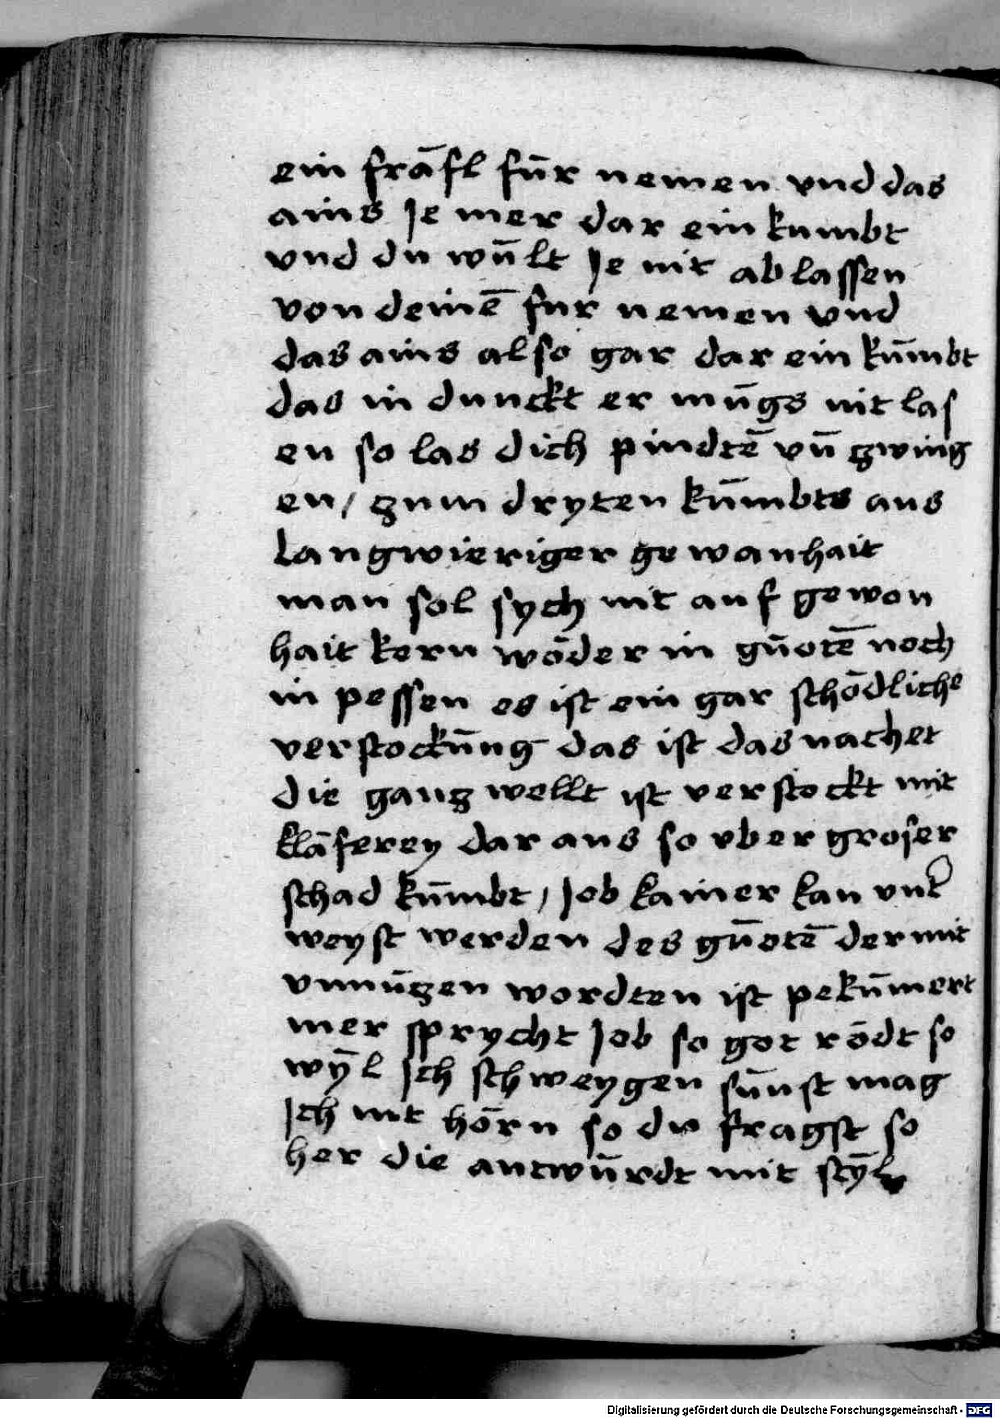 ein frāfl fūr nemen vnd das
ains Je mer dar ein kumbt
vnd du wūlt Je nit ab lassen
von deinē fur nemen vnd
das ains also gar dar ein kūmbt
das in dunckt er mūgs nit las
en so las dich pindtē vn̄ zwing
en / zum dryten kūmbts aus
langwieriger gewanhait
man sol sych nit auf gewon
hait kern wōder in gūotē noch
in pessen es ist ein gar schōdliche
verstockūng das ist das nachet
die ganz wellt ist verstockt mit
klāferey dar aus so vber groser
schad kūmbt / Job kainer kan vnt
weyst werden des gūotē der mit
vnnūzen wordten ist pekūmert
mer sprycht Job so got rōdt so
wȳl Jch schweygen sūnst mag
Jch nit hōrn so du fragst so
her die antwūrdt mit stȳl
Digitalisierung gefördert durch die Deutsche Forschungsgemeinschaft - DFG